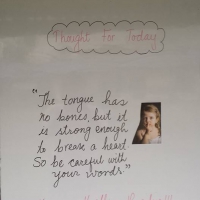 Thought For Today
"The tongue has
no bones, but it
is strong enough
to break a heart.
So be careful with
your words."